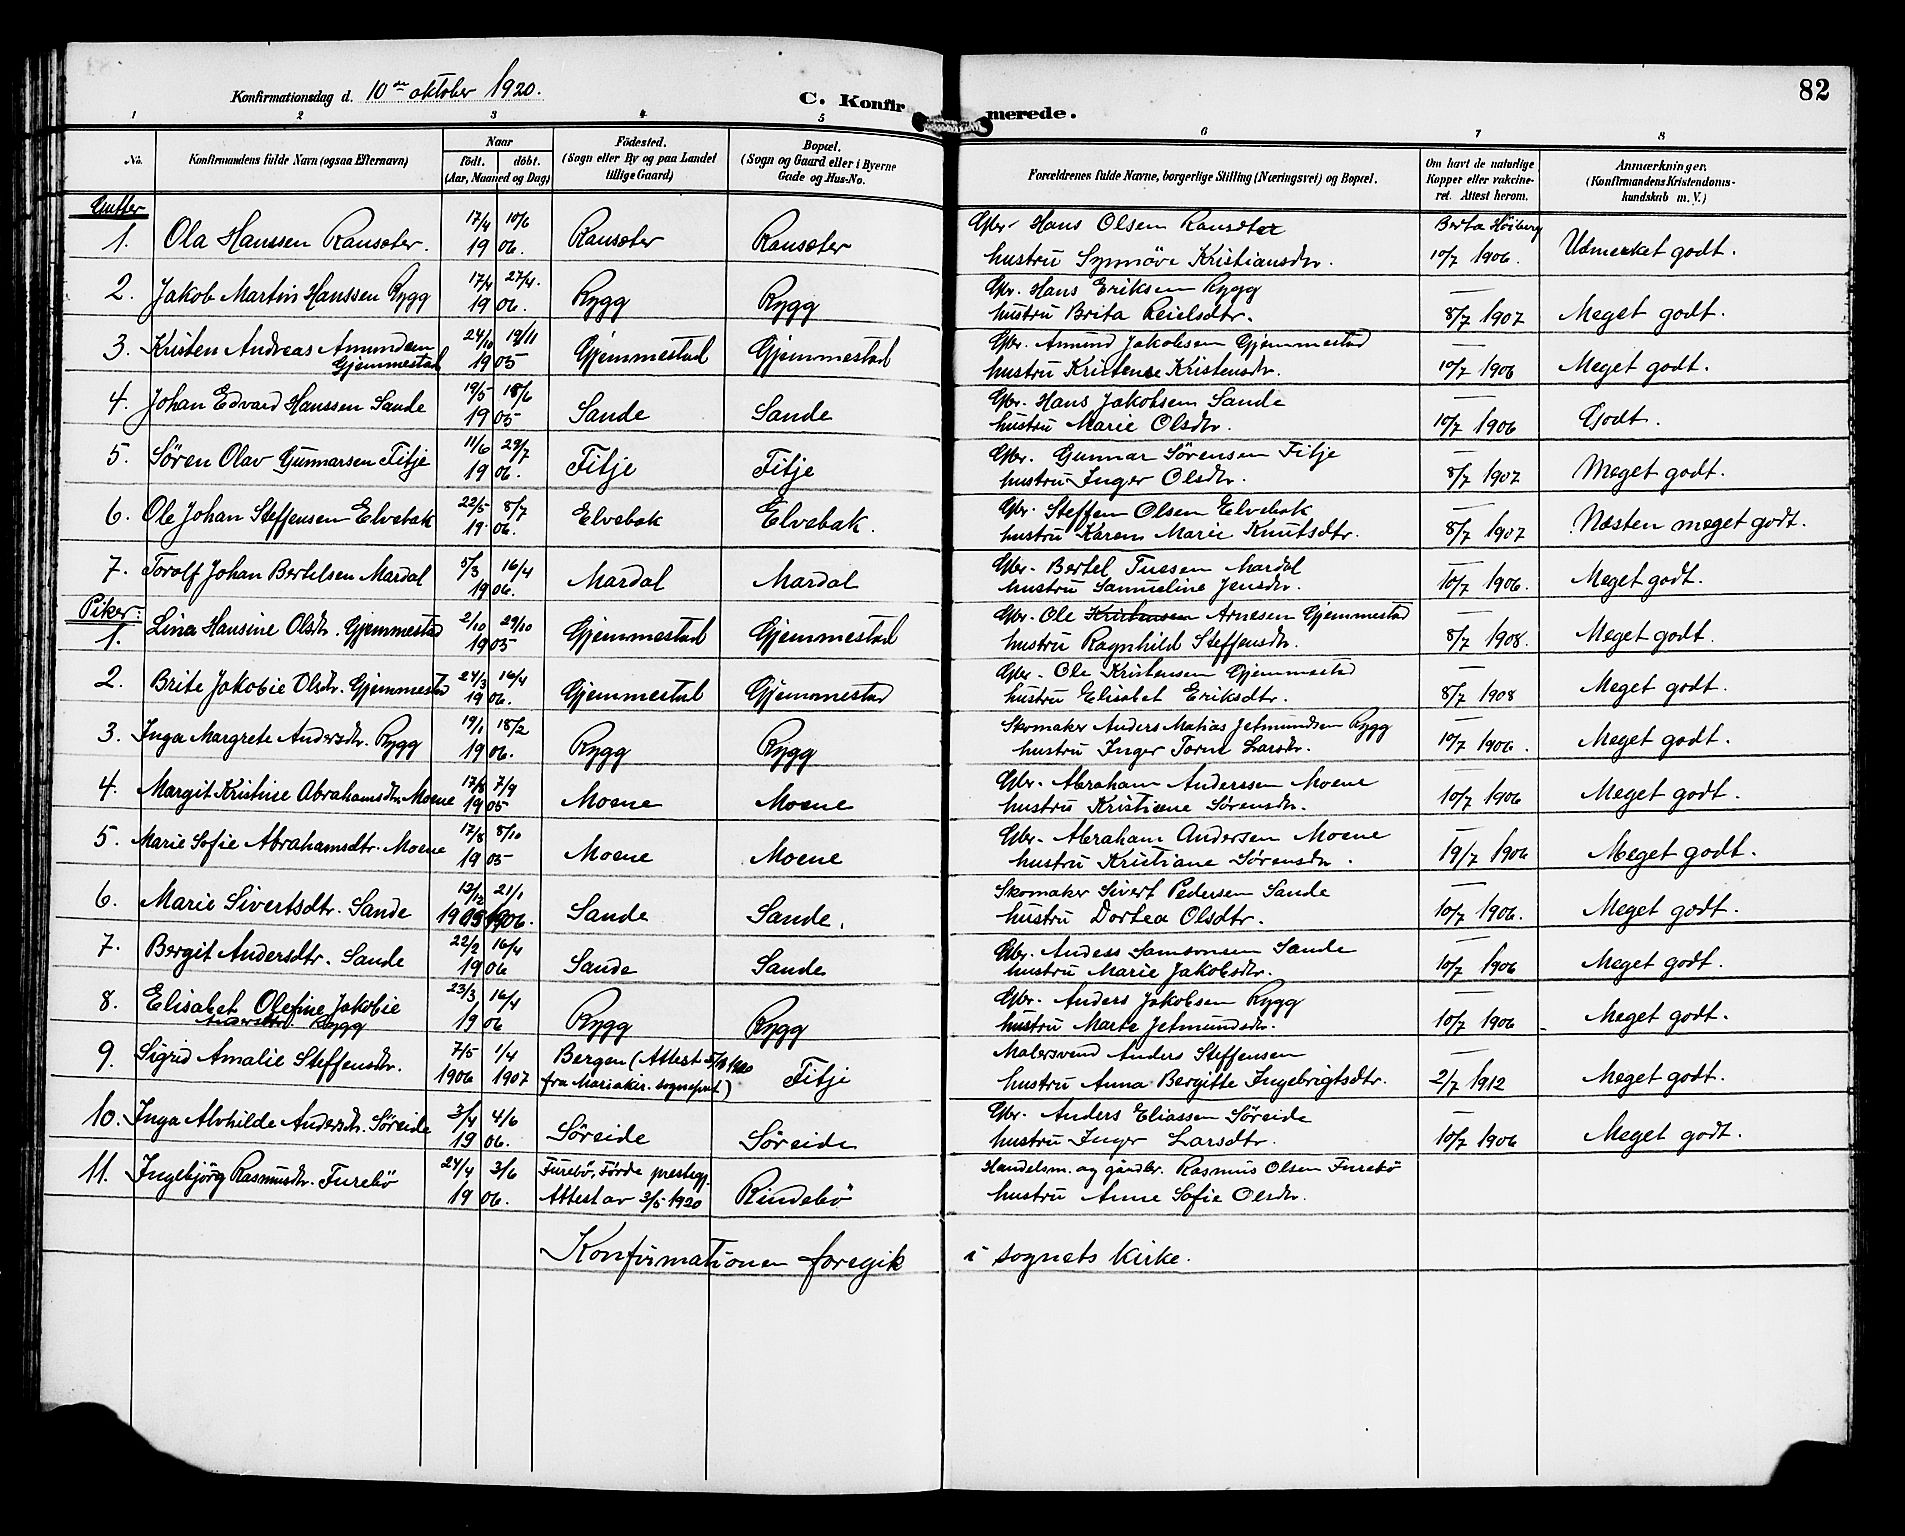 82
Konfirmationsdag d. 10de oktober 1920.
C. Konfirmerede.
1 2 3 4 5 6 7 8
No. Konfirmandens fulde Navn (ogsaa Efternavn) Naar födt. döbt. (Aar, Maaned og Dag) Födested. (Sogn eller By og paa Landet tillige Gaard) Bopæl. (Sogn og Gaard eller i Byerne Gade og Hus-No. Forældrenes fulde Navne, borgerlige Stilling (Næringsvei) og Bopæl. Om havt de naturlige Kopper eller vakcineret. Attest herom. Anmærkninger. (Konfirmandens Kristendomskundskab m. V.)
Gutter
1. Ola Hanssen Rausæter. 17/4 10/6 Rausæter Rausæter Gbr. Hans Olsen Rausæter Berta Höiberg Udmerket godt.
1906. hustru Synnöve Kristiansdtr. 10/7 1906.
2. Jakob Martin Hanssen Rygg 17/4 27/4. Rygg Rygg Gbr. Hans Eriksen Rygg — Meget godt.
1906. hustru Brita Reielsdtr. 8/7 1907
3. Kristen Andreas Amundsen 24/10 19/11 Gjemmestad Gjemmestad Gbr. Amund Jakobsen Gjemmestad — Meget godt.
Gjemmestad 1905 hustru Kristense Kristensdtr. 10/7 1906
4. Johan Edvard Hanssen Sande 19/5 18/6 Sande Sande Gbr. Hans Jakobsen Sande — Godt.
1905 hustru Marie Olsdtr. 10/7 1906
5. Søren Olav Gunnarsen Fitje 11/6 29/7 Fitje Fitje Gbr. Gunnar Sørensen Fitje — Meget godt.
1906. hustru Inger Olsdtr. 8/7 1907
6. Ole Johan Steffensen Elvebak 22/5 8/7 Elvebak Elvebak. Gbr. Steffen Olsen Elvebak — Næsten meget godt.
1906. hustru Karen Marie Knutsdtr. 8/7 1907
7. Torolf Johan Bertelsen Mardal 5/3 16/4 Mardal Mardal Gbr. Bertel Tuesen Mardal — Meget godt.
1906. hustru Samueline Jensdtr. 10/7 1906.
Piker:
1. Lina Hansine Olsdtr. Gjemmestad 2/10 29/10 Gjemmestad Gjemmestad Gbr. Ole Kristensen Arnesen Gjemmestad — Meget godt.
1905 hustru Ragnhild Steffensdtr. 8/7 1908.
2. Brite Jakobie Olsdtr. Gjemmestad 24/3 16/4 Gjemmestad Gjemmestad Gbr. Ole Kristensen Gjemmestad — Meget godt.
1906. hustru Elisabet Eriksdtr. 8/7 1908
3. Inga Margrete Andersdtr. Rygg 19/1 18/2 Rygg Rygg Skomaker Anders Matias Jetmundsen Rygg — Meget godt.
1906. hustru Inger Torne Larsdtr. 10/7 1906.
4. Margit Kristine Abrahamsdtr. Moene 17/8 7/9 Moene Moene Gbr. Abraham Anderssen Moene — Meget godt.
1905 hustru Kristiane Sørensdtr. 10/7 1906
5. Marie Sofie Abrahamsdtr. Moene 17/8 8/10 Moene Moene Gbr. Abraham Andersen Moene — Meget godt.
1905 hustru Kristiane Sørensdtr. 19/7 1906
6. Marie Sivertsdtr. Sande 21/1 Sande Sande. Skomaker Sivert Pedersen Sande — Meget godt.
1905 1906. hustru Dortea Olsdtr. 10/7 1906.
7. Bergit Andersdtr. Sande 22/2 16/4 Sande Sande Gbr. Anders Samsonsen Sande — Meget godt.
1906 hustru Marie Jakobsdtr. 10/7 1906
8. Elisabet Olefine Jakobie 23/3 16/4 Rygg Rygg Gbr. Anders Jakobsen Rygg — Meget godt.
Andersdtr. Rygg 1906 hustru Marte Jetmundsdtr. 10/7 1906
9. Sigrid Amalie Steffensdtr. 7/5 1/4 Bergen (Attest 1920 Fitje Malersvend Anders Steffensen — Meget godt.
1906 1907 fra Mariakir. sognepr.) hustru Anna Bergitte Ingebrigtsdtr. 2/7 1912
10. Inga Alvhilde Andersdtr. Søreide 3/4 4/6 Søreide Søreide Gbr. Anders Eliassen Søreide — Meget godt.
1906. hustru Inger Larsdtr. 10/7 1906
11. Ingebjørg Rasmusdtr. Furebö 24/4 3/6 Furebö, Förde prestegj. Rindebö Handelsm. og gårdbr. Rasmus Olsen Furebö
1906. Attest av 3/5 1920 hustru Anne Sofie Olsdtr.
Konfirmationen foregik i sognets kirke.